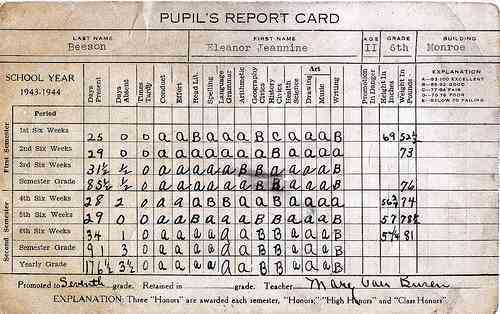 PUPIL'S REPORT CARD
LAST NAME FIRST NAME AGE GRADE BUILDING
Beeson Eleanor Jeannine II 6th Monroe
SCHOOL YEAR
1943-1944
Days Present Days Absent Times Tardy Conduct Effort Read Lit. Spelling Language Grammar Arithmetic Geography Civics History Civics Health Science Art Drawing Music Writing Promotion In Danger Height In Inches Weight In Pounds
EXPLANATION
A—93-100 EXCELLENT
B—85-92 GOOD
C—77-84 FAIR
D—70-76 POOR
E—BELOW 70 FAILING
Period
First Semester
1st Six Weeks 25 0 0 a a B a a a B C a a a B
2nd Six Weeks 29 0 0 a a a a a a a B a a a B 73
3rd Six Weeks 31½ ½ 0 a a a a a B B a a a B
Semester Grade 85½ ½ 0 a a a a a a B a a a B 76
Second Semester
4th Six Weeks 28 2 0 a a B a a B a a a B 74
5th Six Weeks 29 0 0 a a B a a a B B a a a B 57
6th Six Weeks 34 1 0 a a a a a a B B a a a B 81
Semester Grade 91 3 0 a a a a a a B B a a a B
Yearly Grade 176½ 3½ 0 a a a a a a B B a a a B
Promoted to Seventh grade. Retained in grade. Teacher Mary Van Buren
EXPLANATION: Three "Honors" are awarded each semester, "Honors," "High Honors" and "Class Honors".